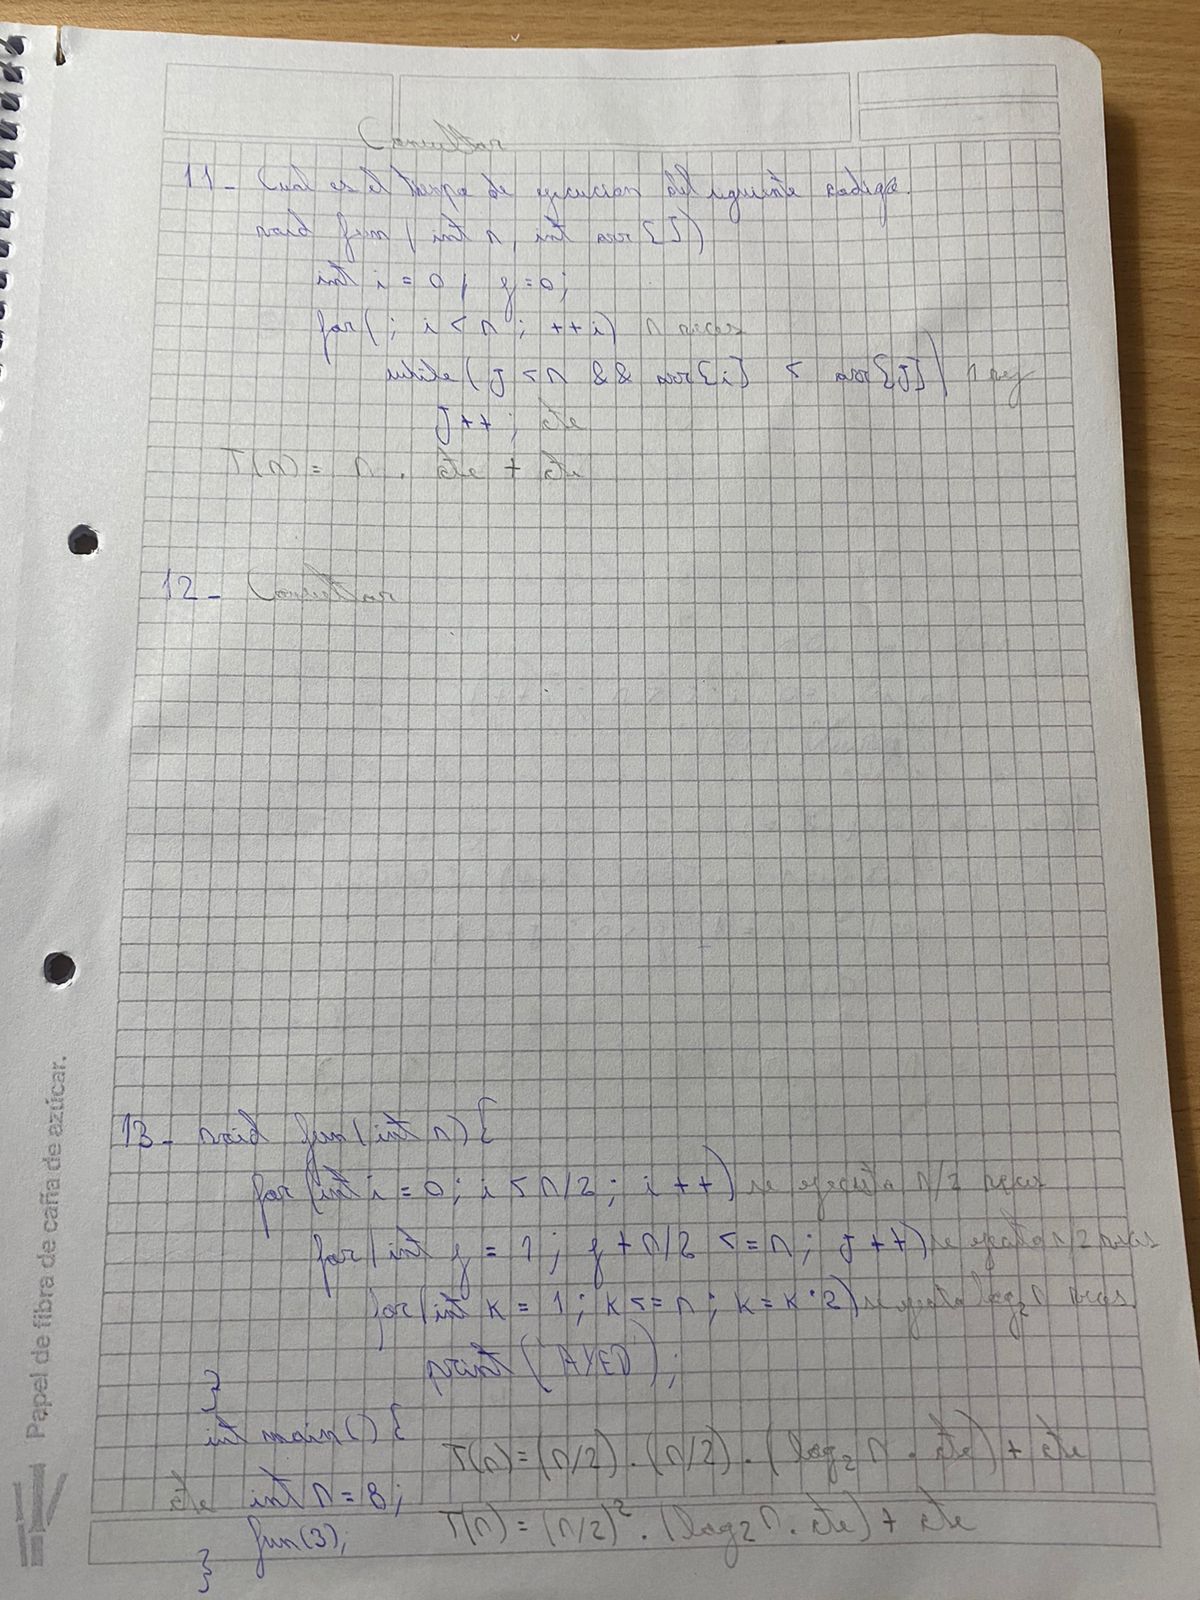 Consultar
11- Cual es el tiempo de ejecucion del siguiente codigo.
void fun (int n, int arr[])
int i = 0, j=0;
for(; i < n ; ++i) n veces
while( j < n && arr[i] < arr[j]) n vez
j++; cte
T(n) = n . cte + cte
12- Consultar
13- void fun(int n) {
for(int i = 0; i < n/2; i++) se ejecuta n/2 veces
for(int j = 1; j + n/2 <= n; j++) se ejecuta n/2 veces
for(int k = 1; k <= n; k = k*2) se ejecuta log2 n veces
print("AYED");
}
int main() {
T(n) = (n/2) . (n/2) . (log2 n . cte) + cte
cte int n = 8;
fun(3);
T(n) = (n/2)² . (log2 n . cte) + cte
}
Papel de fibra de caña de azúcar.